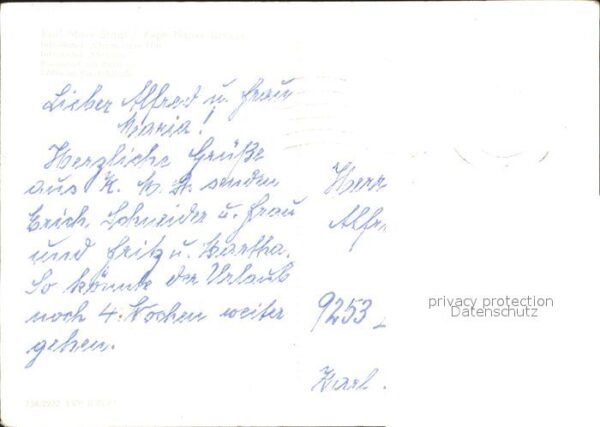 Karl-Marx-Stadt
Lieber Alfred u. Frau
Maria!
Herzliche Grüße
aus K. M. St. senden
Erich Schneider u. Frau
und Fritz u. Martha.
So könnte der Urlaub
noch 4 Wochen weiter
gehen.
Herr
Alfr
9253
Karl
privacy protection
Datenschutz